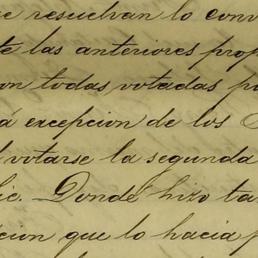 e resuelvan lo conv
te las anteriores prop
on todas votadas po
á excepcion de los
l votarse la segunda
lic. Donde hizo ta
cion que lo hacia p